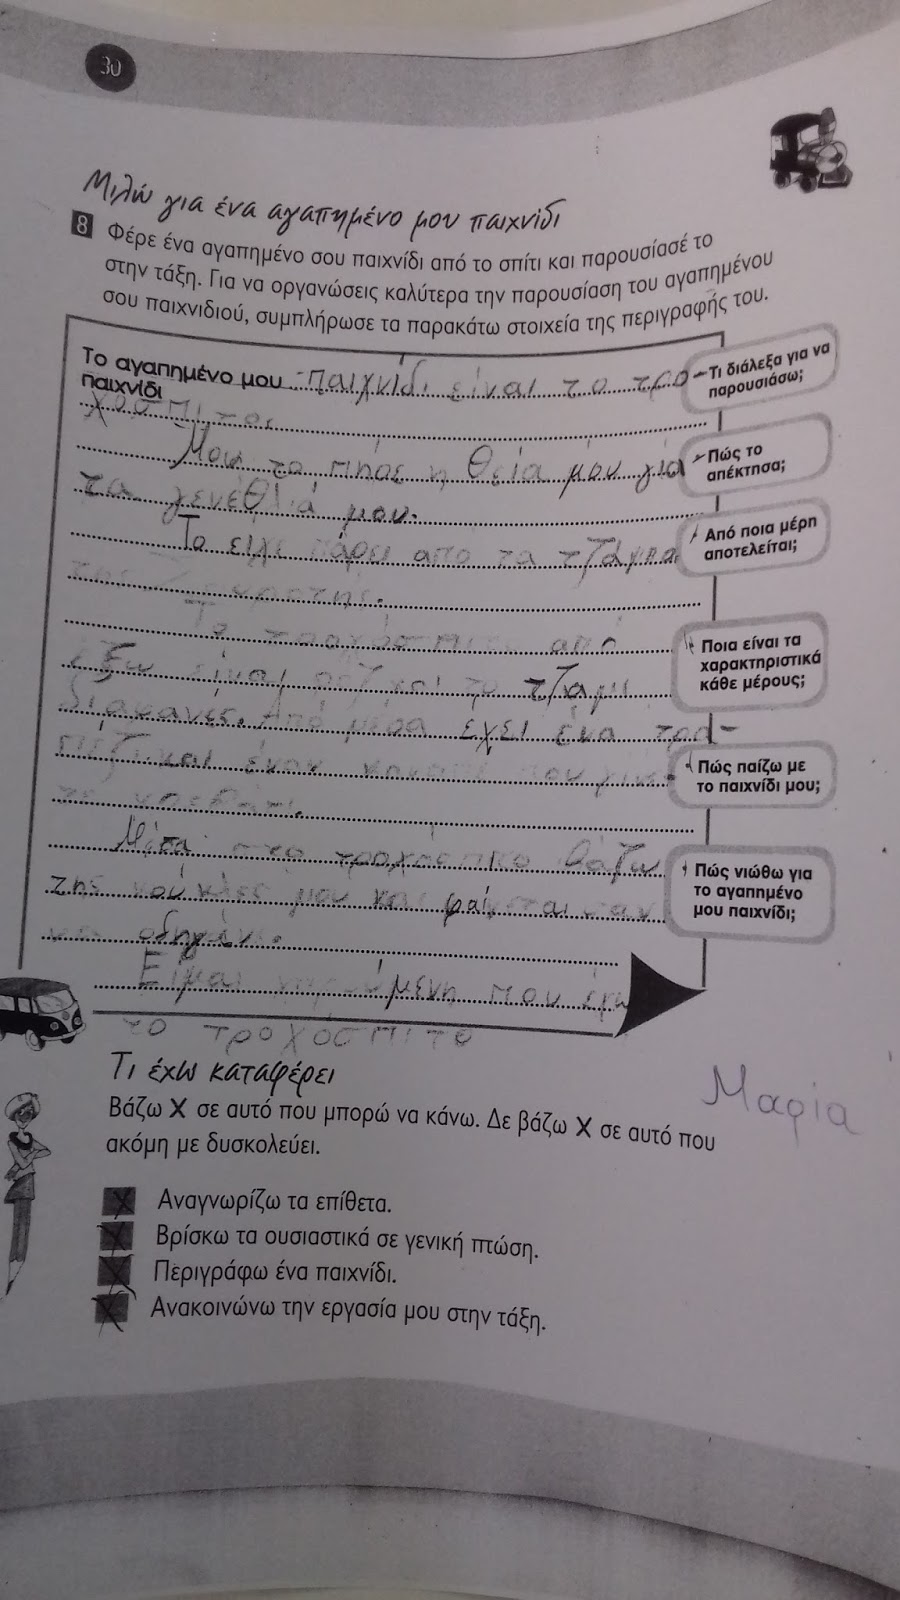 30
Μιλώ για ένα αγαπημένο μου παιχνίδι
8 Φέρε ένα αγαπημένο σου παιχνίδι από το σπίτι και παρουσίασέ το
στην τάξη. Για να οργανώσεις καλύτερα την παρουσίαση του αγαπημένου
σου παιχνιδιού, συμπλήρωσε τα παρακάτω στοιχεία της περιγραφής του.
Το αγαπημένο μου παιχνίδι είναι το τρο
παιχνίδι
χόσπιτο.
Μου το πήρε η θεία μου για
τα γενέθλιά μου.
Το είχε πάρει από τα τζάμπο
της
Το τροχόσπιτο από
έξω είναι ροζ και το τζάμι
διαφανές. Από μέσα έχει ένα τρα-
πέζι και έναν καναπέ που γίνε
κρεβάτι.
Μέσα στο τροχόσπιτο βάζω
της κούκλες μου και φαίνεται σαν
να οδηγάνε.
Είμαι χαρούμενη που έχω
το τροχόσπιτο
Τι διάλεξα για να
παρουσιάσω;
Πώς το
απέκτησα;
Από ποια μέρη
αποτελείται;
Ποια είναι τα
χαρακτηριστικά
κάθε μέρους;
Πώς παίζω με
το παιχνίδι μου;
Πώς νιώθω για
το αγαπημένο
μου παιχνίδι;
Τι έχω καταφέρει
Μαρία
Βάζω Χ σε αυτό που μπορώ να κάνω. Δε βάζω Χ σε αυτό που
ακόμη με δυσκολεύει.
Χ Αναγνωρίζω τα επίθετα.
Χ Βρίσκω τα ουσιαστικά σε γενική πτώση.
Χ Περιγράφω ένα παιχνίδι.
Χ Ανακοινώνω την εργασία μου στην τάξη.